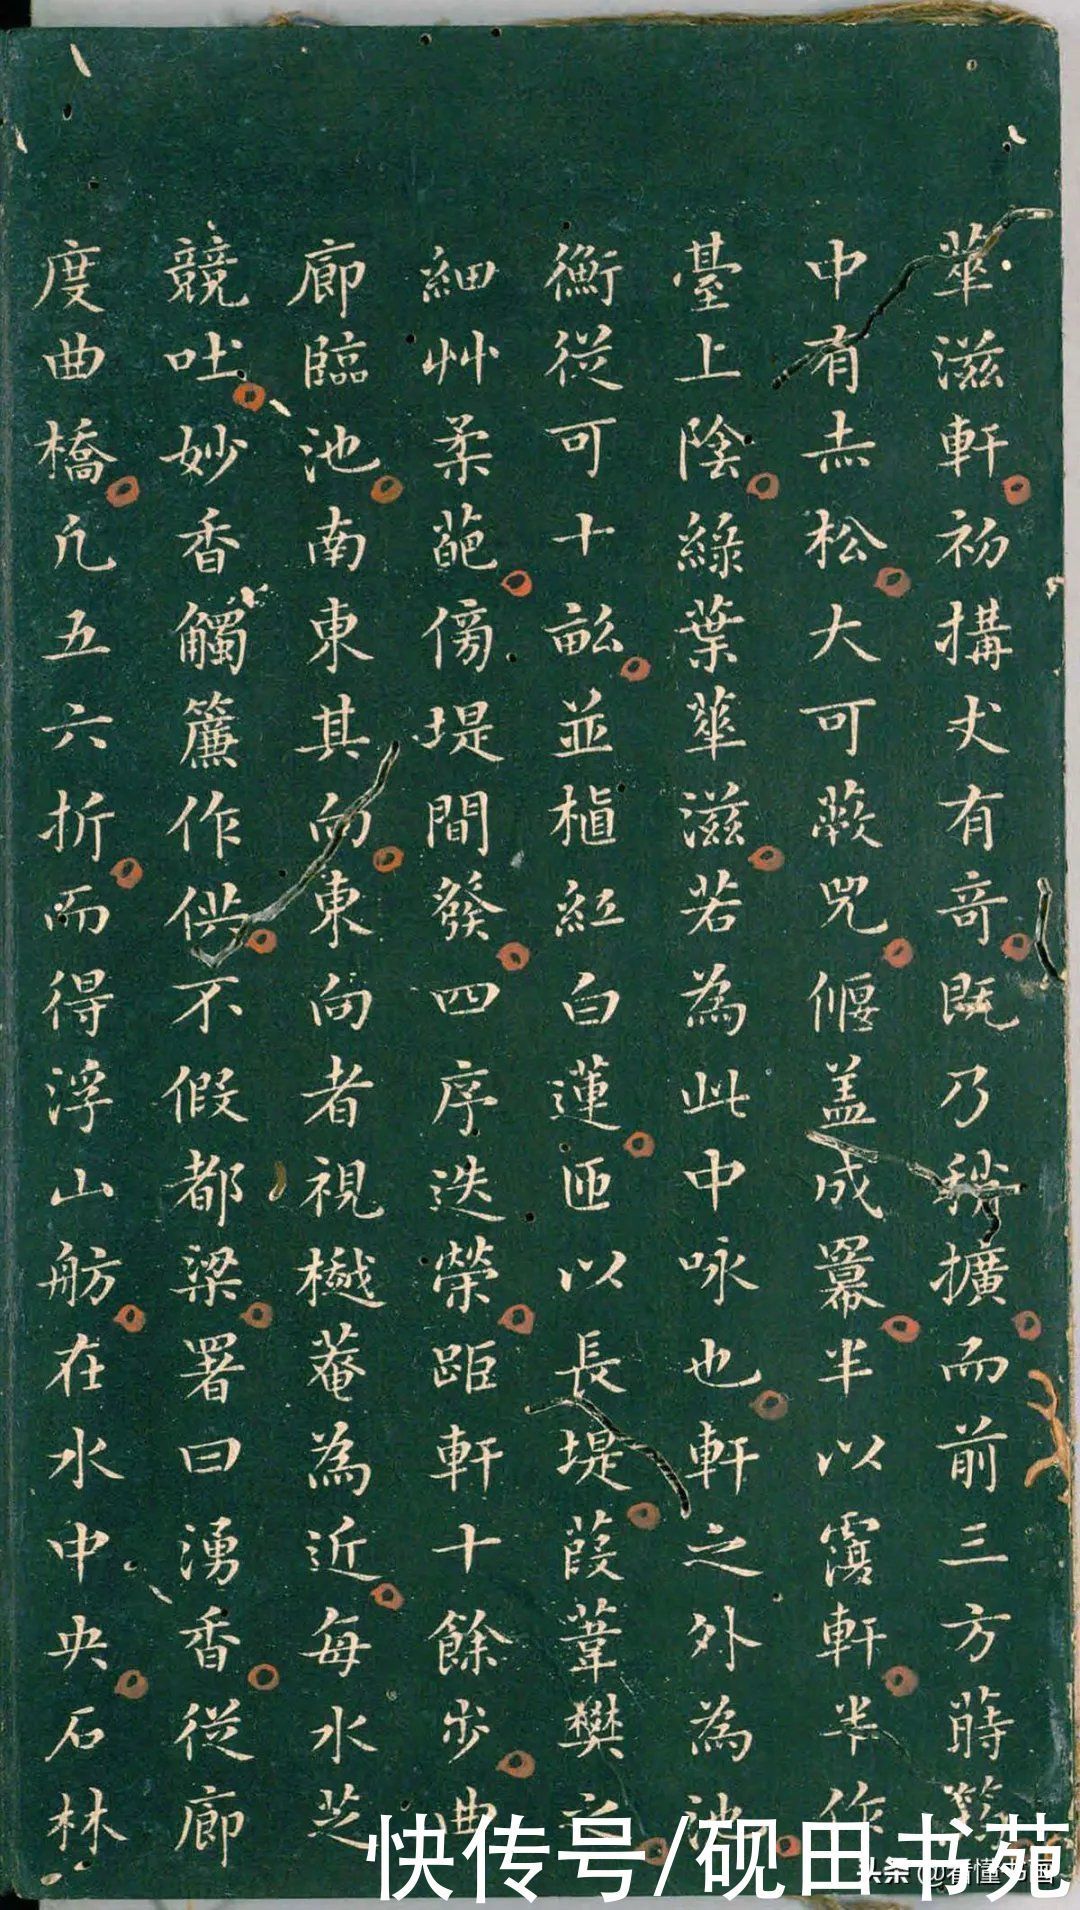 華滋軒初搆丈有奇既乃稍擴而前三方蒔篛
中有赤松大可蔽兕偃盖成羃半以覆軒半作
臺上陰綠葉華滋若為此中咏也軒之外為池
衡從可十畝並植紅白蓮匝以長堤葭葦樊之
細艸柔葩傍堤間發四序迭榮距軒十餘步曲
廊臨池南東其向東向者視樾菴為近每水芝
競吐妙香觸簾作供不假都梁署曰湧香從廊
度曲橋凢五六折而得浮山舫在水中央石林
快传号/砚田书苑
头条@看懂书画